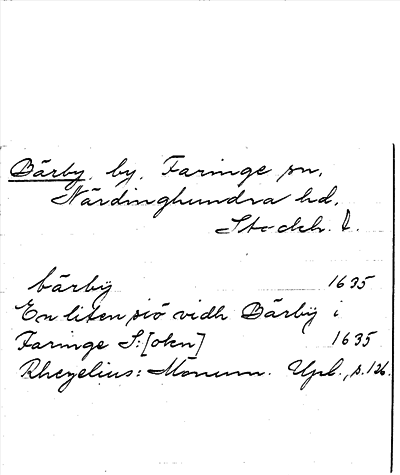 Bärby, by, Faringe sn,
Närdinghundra hd,
Stockh. l.
bärbÿ 1635
En liten siö vidh Bärbÿ i
Faringe S:[okn] 1635
Rhezelius: Monum. Upl., s. 126.